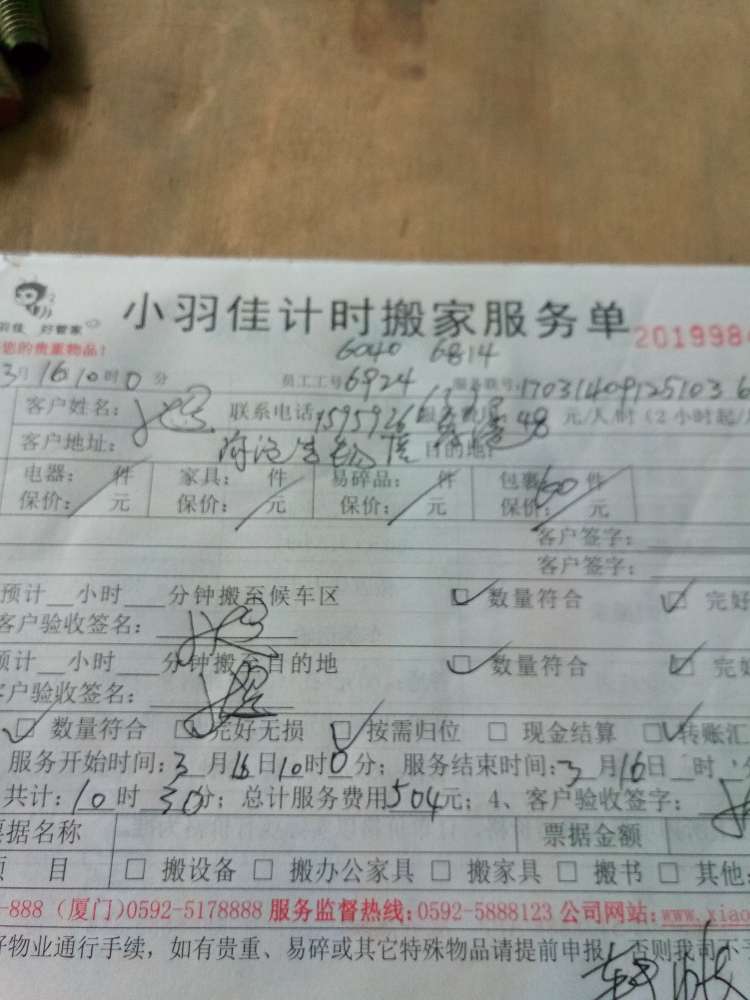 小羽佳计时搬家服务单
2019984
羽佳 好管家
您的贵重物品!
6040 6814
3月16 10时0分 员工工号 6924 服务联号: 170314091251036
客户姓名: 联系电话 服务费用 48 元/人/时 (2小时起/
客户地址: 目的地:
电器: 件 家具: 件 易碎品: 件 包裹 60 件
保价: 元 保价: 元 保价: 元 保价: 元
客户签字:
客户签字:
预计 小时 分钟搬至候车区 数量符合 完好
客户验收签名:
预计 小时 分钟搬至目的地 数量符合 完好
客户验收签名:
数量符合 完好无损 按需归位 现金结算 转账汇
服务开始时间: 3月16日10时0分; 服务结束时间: 3月16日 时 分
共计: 10时30分; 总计服务费用504元; 4、客户验收签字:
票据名称 票据金额
项 目 搬设备 搬办公家具 搬家具 搬书 其他:
-888 (厦门)0592-5178888 服务监督热线:0592-5888123 公司网站:www.xiao
好物业通行手续,如有贵重、易碎或其它特殊物品请提前申报,否则我司不予